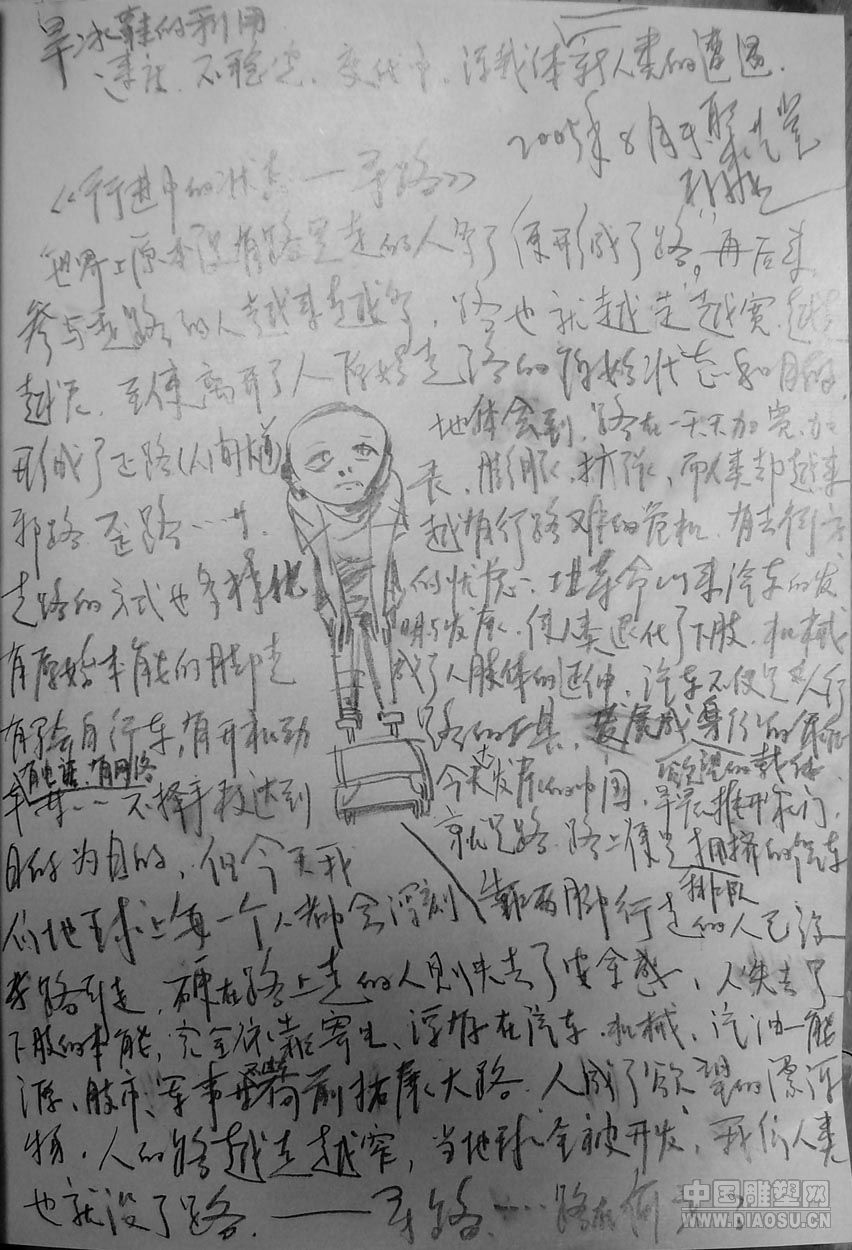 旱冰鞋的利用
速度、不稳定、变化中、浮载体 新人类的遭遇.
2005年8月于
《行进中的状态——寻路》
世界上原本没有路 走的人多了便形成了路。再后来,
参与走路的人越来越多，路也就越走越宽.越
越 至使离开了人原始走路的原始状态和目的,
形成了正路(人间道)
邪路 歪路……等.
走路的方式也多样化
有原始本能的脚走
有会自行车,有开机动
有电话.有网络
车等……不择手段达到
目的为目的,但今天我
们地球上每一个人都会深刻
地体会到,路在一天天加宽、加
长、膨胀、扩张,而人类却越来
越有行路难的危机.有去何方
的忧虑.工业革命以来汽车的发
明与发展.使人类退化了下肢.机械
成了人肢体的延伸,汽车不仅是人行
路的工具,发展成身份的
欲望的载体
今天发展的中国,早晨推开家门,
就是路.路上便是拥挤的汽车
排队
靠两脚行走的人已没
有路可走,硬在路上走的人则失去了安全感、人失去了
下肢的本能,完全依靠寄生、浮存在汽车.机械、汽油—能
源、股市、军事 前拓展大路.人成了欲望的漂浮
物,人的路越走越窄,当地球全被开发,我们人类
也就没了路.——寻路……路在何方?
中国雕塑网
WWW.DIAOSU.CN